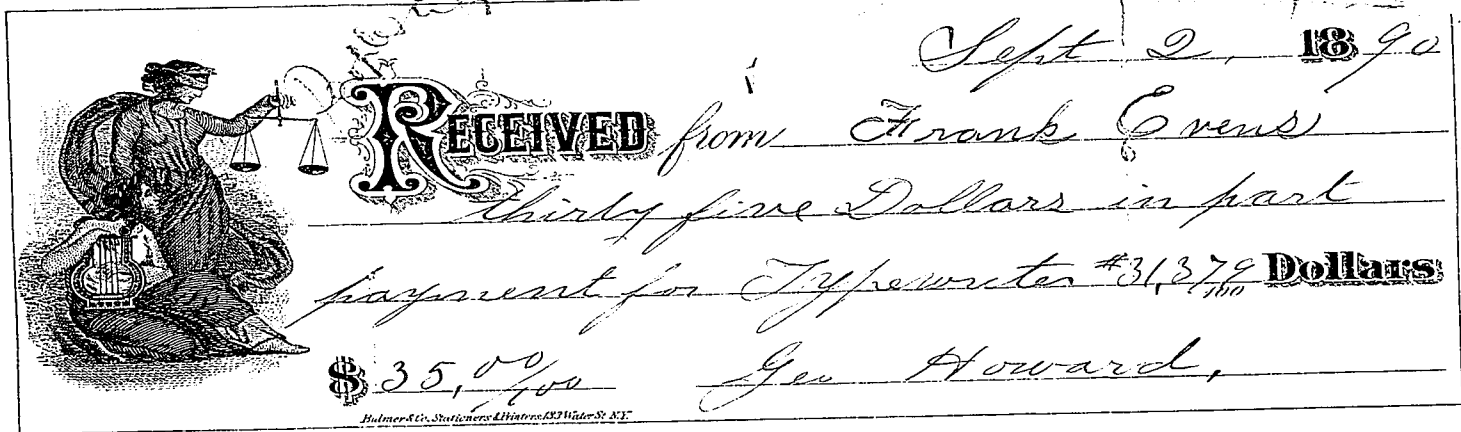 Sept 2, 1890
RECEIVED from Frank Evens
thirty five Dollars in part
payment for Typewriter #31,379 /100 Dollars
$ 35,00/100 Geo Howard,
Hulmer & Co. Stationers & Printers 133 Water St. N.Y.